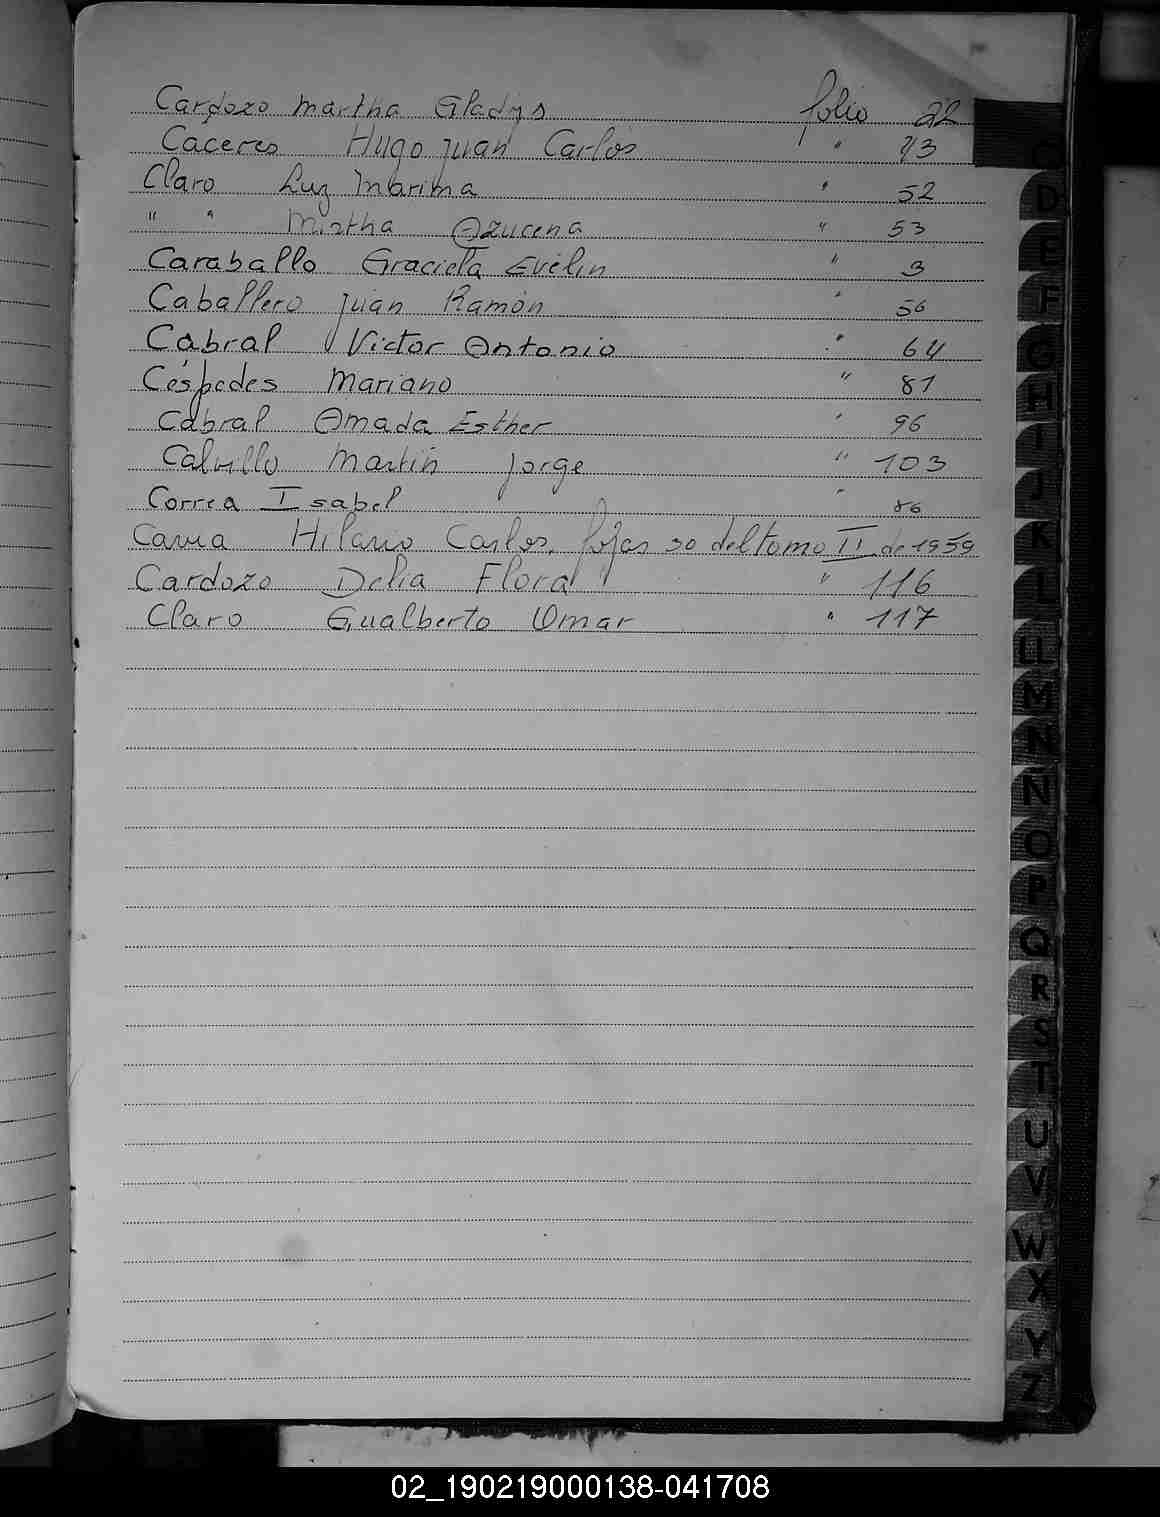 Cardozo Martha Gladys folio 22
Caceres Hugo Juan Carlos " 43
Claro Luz Marima " 52
" " Mirtha Azucena " 53
Caraballo Graciela Evelin " 3
Caballero Juan Ramón " 56
Cabral Victor Antonio " 64
Céspedes Mariano " 81
Cabral Amada Esther " 96
Calvillo Martin Jorge " 103
Correa Isabel " 86
Hilario Carlos, fojas 30 del tomo II de 1959
Cardozo Delia Flora " 116
Claro Gualberto Omar " 117
C
D
E
F
G
H
I
J
K
L
LL
M
N
Ñ
O
P
Q
R
S
T
U
V
W
X
Y
Z
02_190219000138-041708